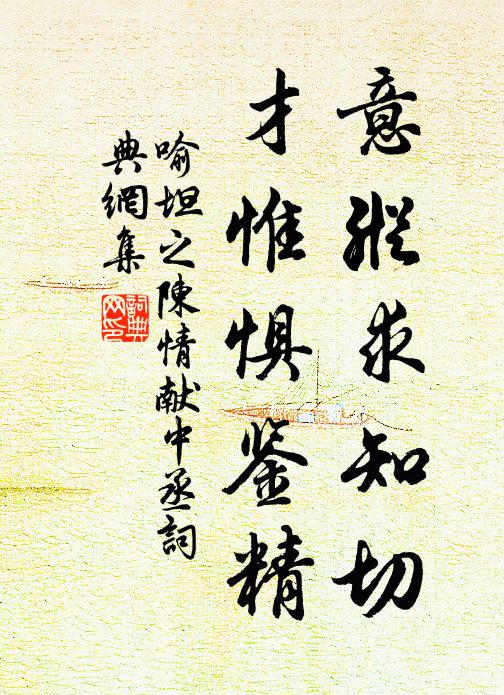 意縱求知切
才惟懼鉴精
喻坦之陳情献中丞詞
典網集
詞典网印